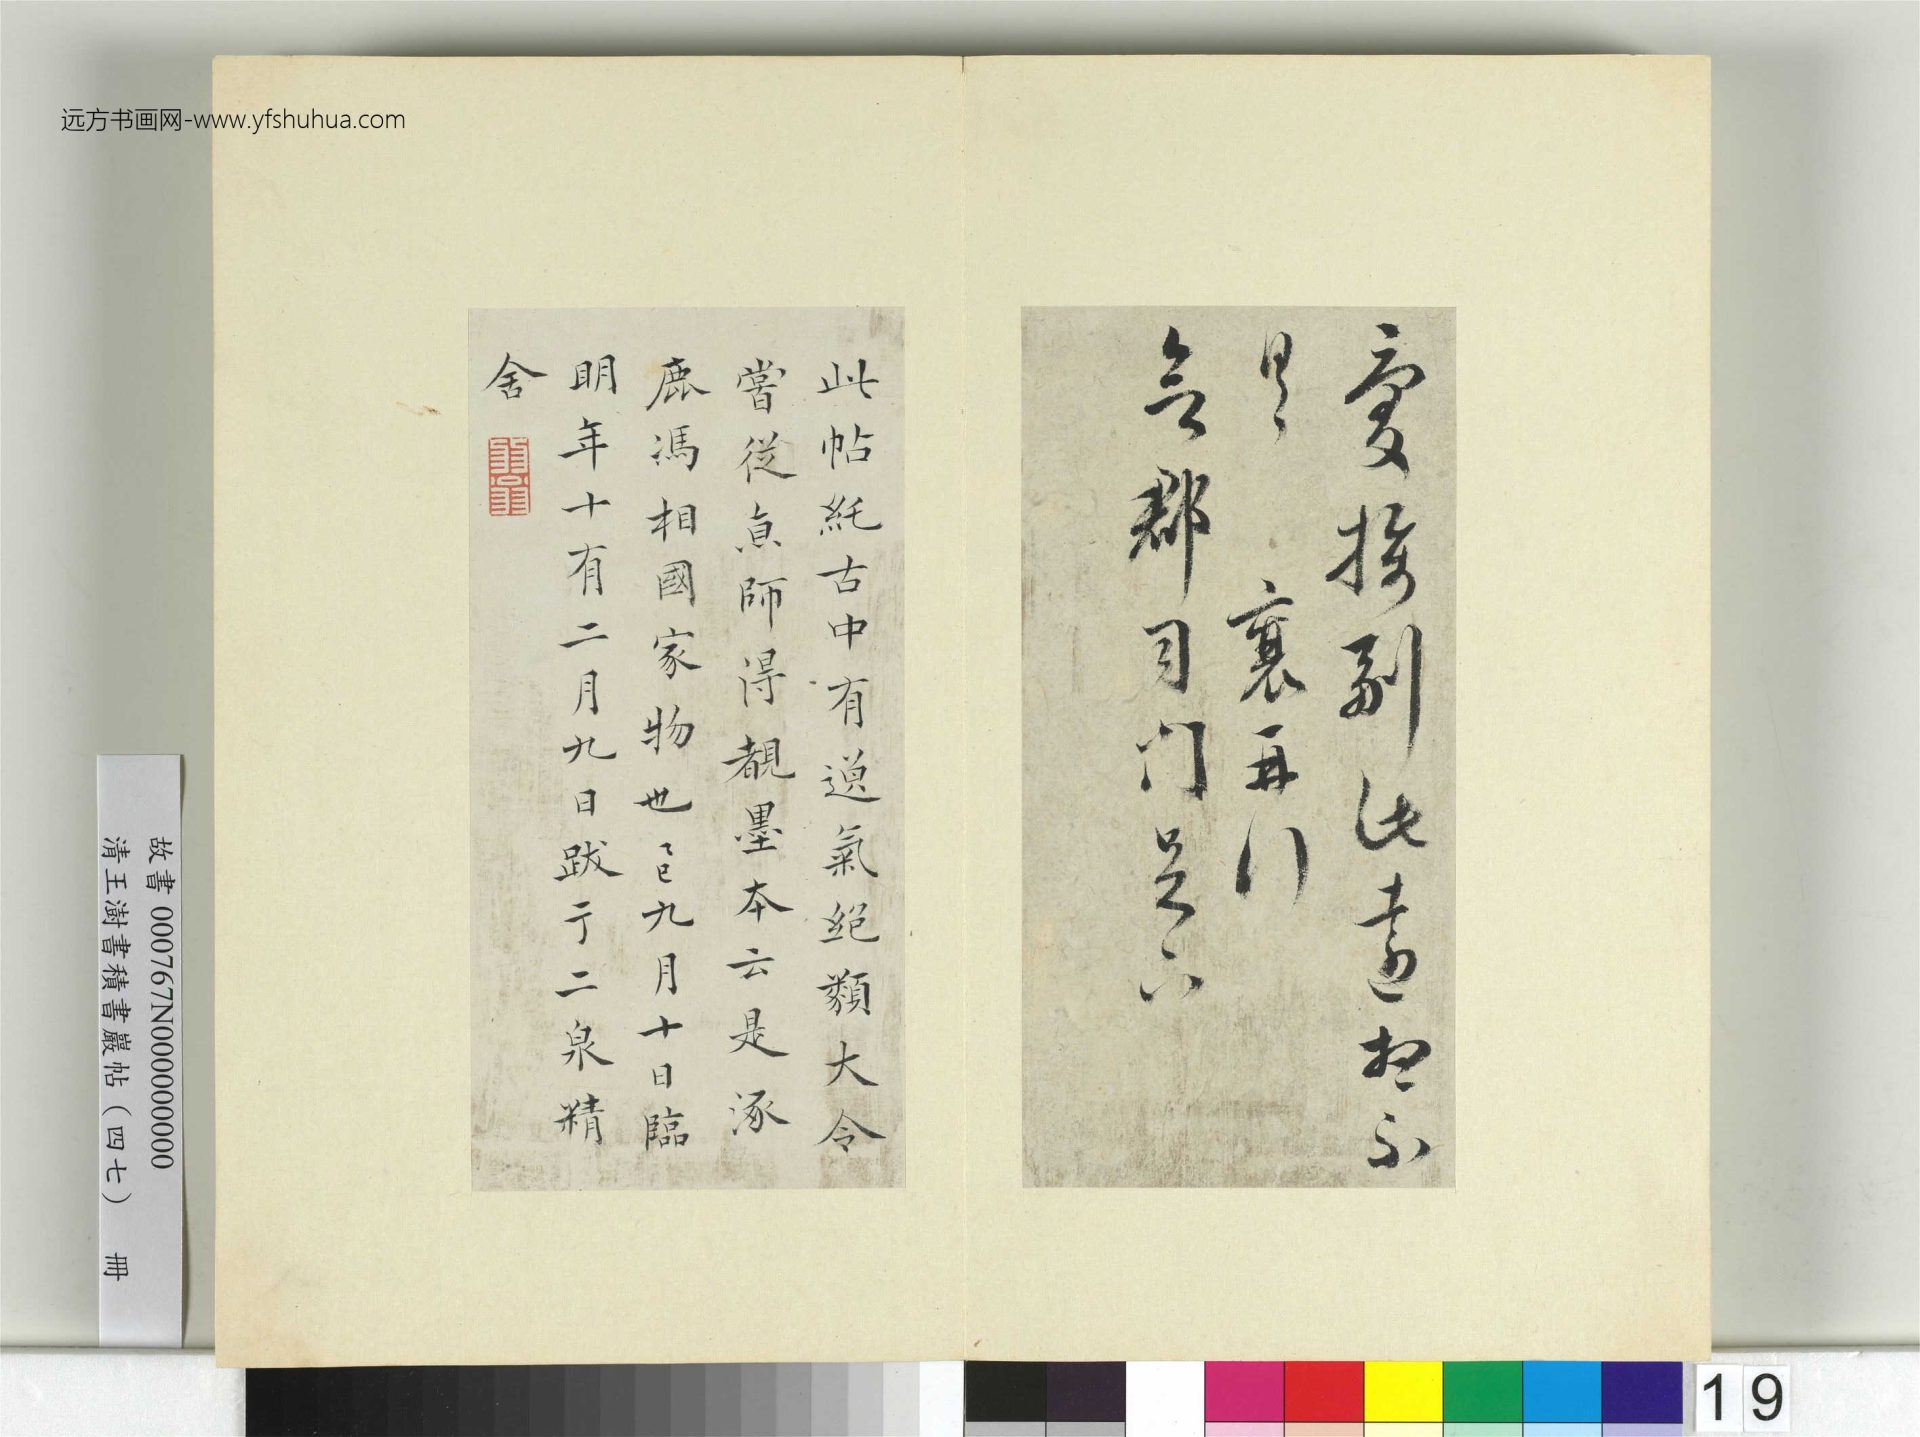 远方书画网-www.yfshuhua.com
副此遠想不
具 襄再行
郡司門足下
此帖純古中有遒氣絕類大令
嘗從師得覩墨本云是涿
鹿馮相國家物也乙巳九月十日臨
明年十有二月九日跋于二泉精
舍
故書 000767N000000000
清王澍書積書巖帖(四七) 冊
19